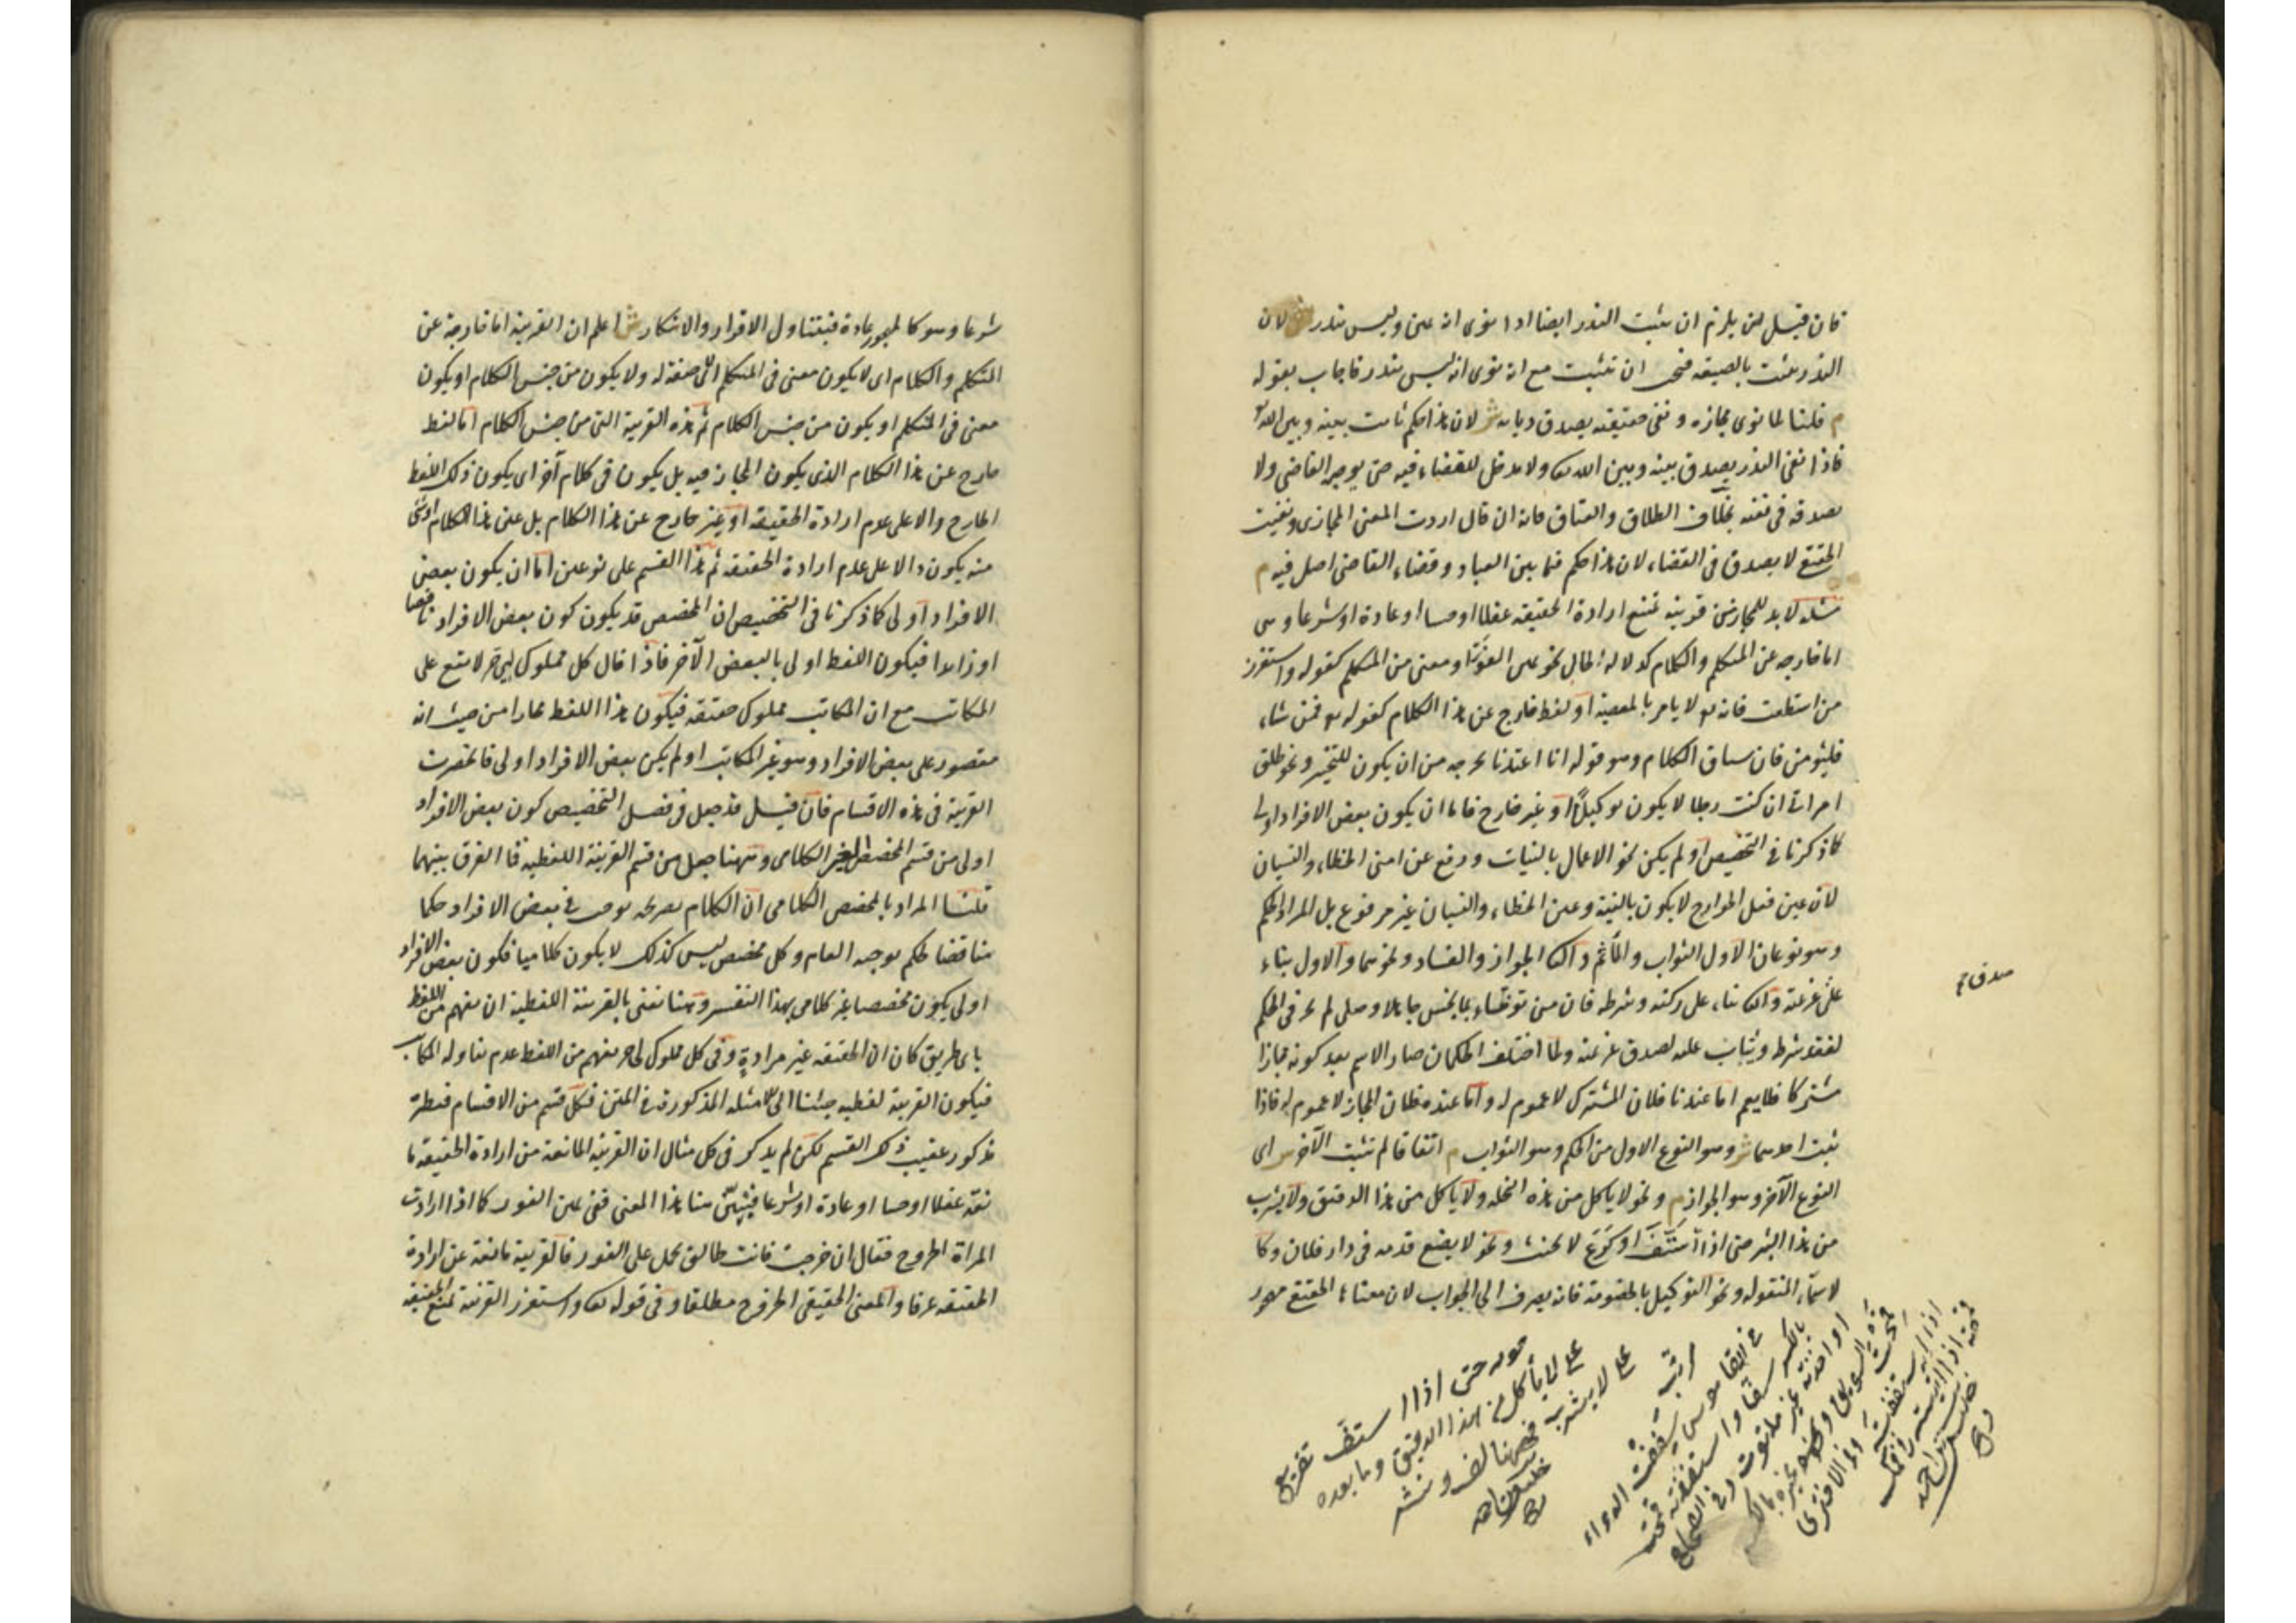 فان قيل لن يلزم ان يثبت النذر ايضا اذا نوى انه يمين وليس بنذر ش لان
النذر يثبت بالصيغة فيجب ان يثبت مع انه نوى انه ليس بنذر فاجاب بقوله
م قلنا لما نوى مجازه ونفى حقيقته يصدق ديانة ش لان هذا حكم ثابت بينه وبين الله تع
فاذا نفى النذر يصدق بينه وبين الله تعالى ولا مدخل للقضاء فيه حتى يوجبه القاضي ولا
يصدقه في نفيه بخلاف الطلاق والعتاق فانه ان قال اردت المعنى المجازي ونفيت
الحقيقي لا يصدق في القضاء لان هذا حكم فيما بين العباد وقضاء القاضي اصل فيه م
مسئلة لا بد للمجاز من قرينة تمنع ارادة الحقيقة عقلا او حسا او عادة او شرعا وهي
اما خارجة عن المتكلم والكلام كدلالة الحال نحو يمين الفور او معنى من المتكلم كقوله واستفزز
من استطعت فانه تع لا يامر بالمعصية او لفظ خارج عن هذا الكلام كقوله تع فمن شاء
فليؤمن فان سياق الكلام وهو قوله انا اعتدنا يخرجه من ان يكون للتخيير ونحو طلق
امراتي ان كنت رجلا لا يكون توكيلا او غير خارج فاما ان يكون بعض الافراد اولى
كما ذكرنا في التخصيص او لم يكن نحو الاعمال بالنيات ورفع عن امتي الخطاء والنسيان
لان عين فعل الجوارح لا يكون بالنية وعين الخطاء والنسيان غير مرفوع بل المراد الحكم
وهو نوعان الاول الثواب والماثم والثاني الجواز والفساد ونحوهما والاول بناء
على عزيمته والثاني بناء على ركنه وشرطه فان من توضاء بماء نجس جاهلا وصلى لم يجز في الحكم
لفقد شرطه ويثاب عليه لصدق عزيمته ولما اختلف الحكمان صار الاسم بعد كونه مجازا
مشتركا فلا يعم اما عندنا فلان المشترك لا عموم له واما عنده فلان المجاز لا عموم له فاذا
ثبت احدهما ش وهو النوع الاول من الحكم وهو الثواب م اتفاقا لم يثبت الآخر ش اي
النوع الآخر وهو الجواز م ونحو لا ياكل من هذه النخلة ولا ياكل من هذا الدقيق ولا يشرب
من هذا البئر حتى اذا استف او كرع لا يحنث ونحو لا يضع قدمه في دار فلان وكا
لاسماء المنقولة ونحو التوكيل بالخصومة فانه يصرف الى الجواب لان معناه الحقيقي مهجور
صدق
قوله حتى اذا استف تفريع
على لا ياكل من هذا الدقيق وما بعده
على لا يشرب فههنا لف ونشر
مرتب
في القاموس سففت الدواء
بالكسر سفا واستففته قمحته
او اخذته غير ملتوت وفي الصحاح
شرعا وهو كالمهجور عادة فيتناول الاقرار والانكار ش اعلم ان القرينة اما خارجة عن
المتكلم والكلام اي لا يكون معنى في المتكلم اي صفة له ولا يكون من جنس الكلام او يكون
معنى في المتكلم او يكون من جنس الكلام ثم هذه القرينة التي من جنس الكلام اما لفظ
خارج عن هذا الكلام الذي يكون المجاز فيه بل يكون في كلام آخر اي يكون ذلك اللفظ
الخارج دالا على عدم ارادة الحقيقة او غير خارج عن هذا الكلام بل عين هذا الكلام او شئ
منه يكون دالا على عدم ارادة الحقيقة ثم هذا القسم على نوعين اما ان يكون بعض
الافراد اولى كما ذكرنا في التخصيص ان المخصص قد يكون كون بعض الافراد ناقصا
او زائدا فيكون اللفظ اولى بالبعض الآخر فاذا قال كل مملوك لي حر لا يقع على
المكاتب مع ان المكاتب مملوك حقيقة فيكون هذا اللفظ مجازا من حيث انه
مقصور على بعض الافراد وهو غير المكاتب او لم يكن بعض الافراد اولى فانحصرت
القرينة في هذه الاقسام فان قيل قد جعل في فصل التخصيص كون بعض الافراد
اولى من قسم المخصص الغير الكلامي وههنا جعل من قسم القرينة اللفظية فما الفرق بينهما
قلنا المراد بالمخصص الكلامي ان الكلام بصريحه يوجب في بعض الافراد حكما
مناقضا لحكم يوجبه العام وكل مخصص ليس كذلك لا يكون كلاميا فكون بعض الافراد
اولى يكون مخصصا غير كلامي بهذا التفسير وههنا نعني بالقرينة اللفظية ان يفهم من اللفظ
باي طريق كان ان الحقيقة غير مرادة وفي كل مملوك لي حر يفهم من اللفظ عدم تناوله المكاتب
فيكون القرينة لفظية جئنا الى الامثلة المذكورة في المتن فكل قسم من الاقسام فنظيره
مذكور عقيب ذلك القسم لكن لم يذكر في كل مثال ان القرينة المانعة من ارادة الحقيقة ما
نعة عقلا او حسا او عادة او شرعا فنبين هنا هذا المعنى ففي يمين الفور كما اذا ارادت
المراة الخروج فقال ان خرجت فانت طالق يحمل على الفور فالقرينة مانعة عن ارادة
الحقيقة عرفا والمعنى الحقيقي الخروج مطلقا وفي قوله تعالى واستفزز القرينة تمنع الحقيقة